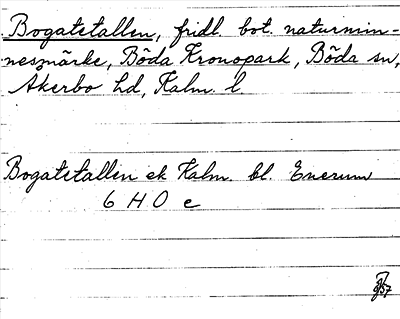 Bogatetallen, fridl. bot. naturmin-
nesmärke, Böda Kronopark, Böda sn,
Åkerbo hd, Kalm. l.
Bogatetallen ek Kalm. bl. Enerum
6 H O e
57